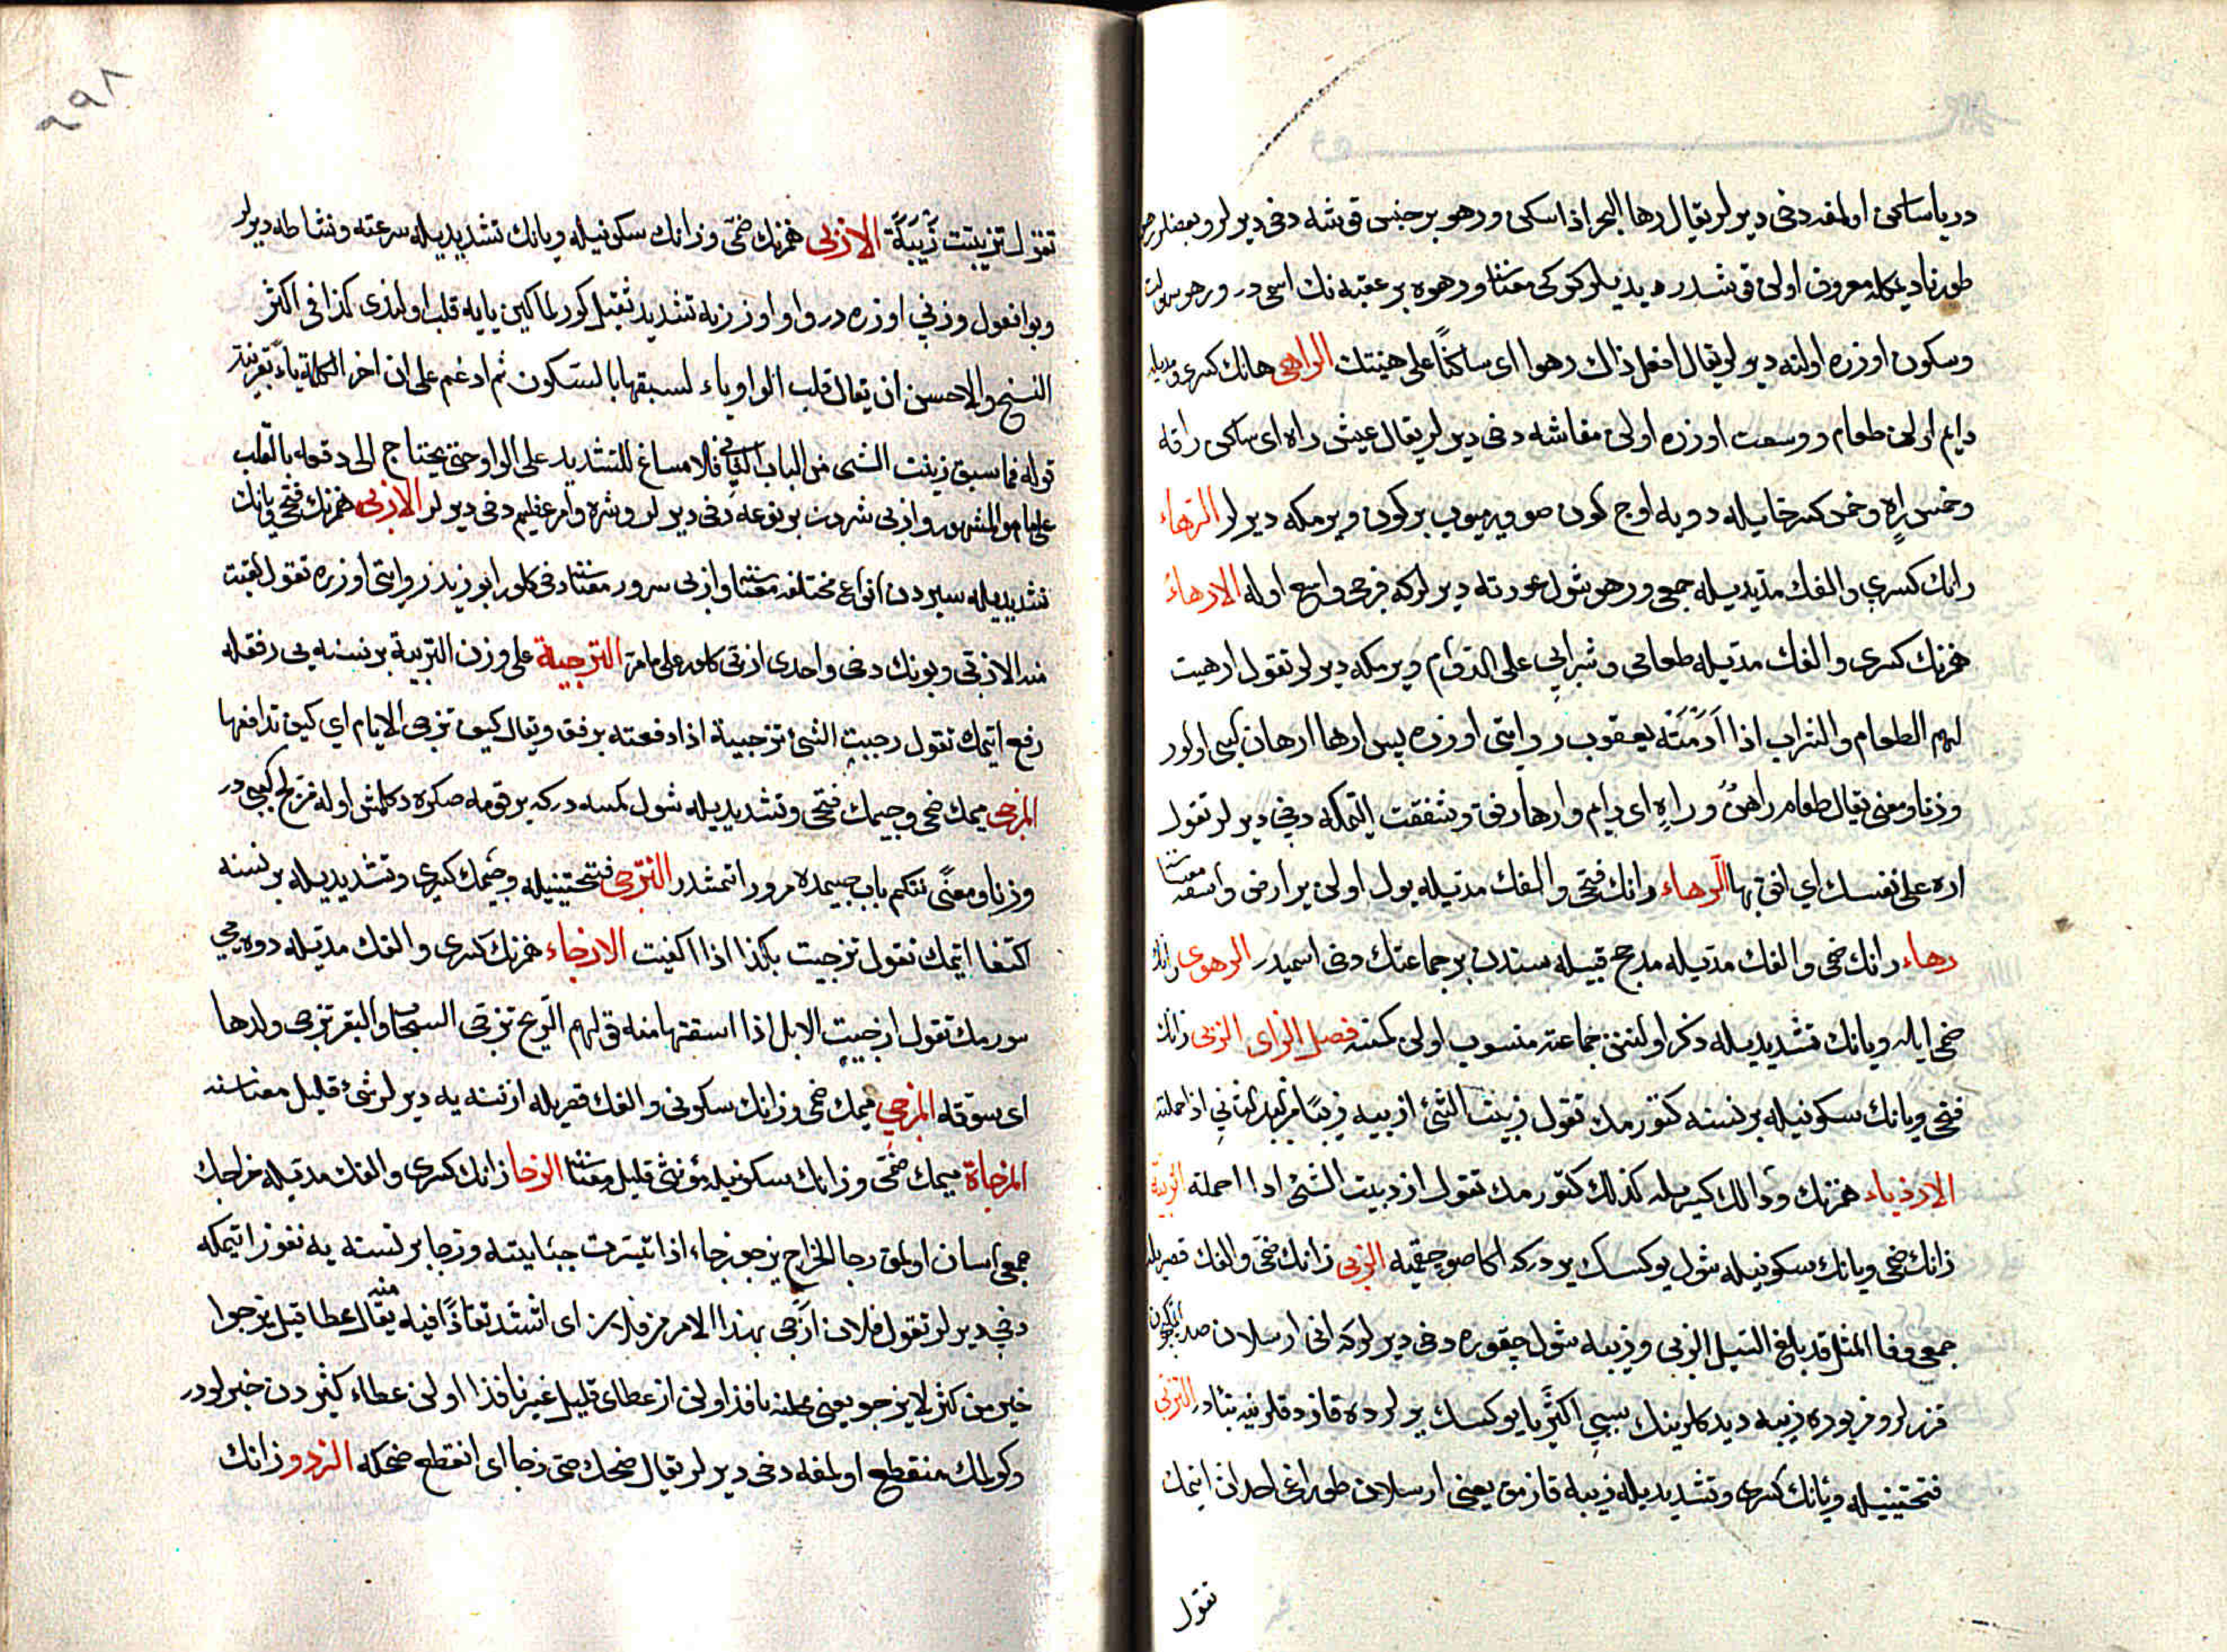 دریا ساکن اولمغه دخی دیرلر یقال رها البحر اذا سکن ورهو بر جنس قوشه دخی دیرلر وبعضلر
طورنا دیمکله معروف اولن قوشدر دیدیلر کرکی معناسنا ورهوه بر عقبه نك اسمی در ورهو
وسکون اوزره اولنه دیرلر یقال افعل ذلك رهوا ای ساکنًا علی هینتك الراهی هانك کسری
دایم اولن طعام ووسعت اوزره اولن معاشه دخی دیرلر یقال عیش راه ای ساکن رافه
وخمس راه وخمس کسر خایله دویه اوچ کون صو ویرمیوب بر کون ویرمکه دیرلر الرهاء
رانك کسری والفك مدیله جمعی ورهو شول عورته دیرلر که فرجی واسع اوله الارهاء
همزنك کسری والفك مدیله طعامی وشرابی علی الدوام ویرمکه دیرلر تقول ارهیت
لهم الطعام والشراب اذا ادمته یعقوب روایتی اوزره پس ارها ارهان کبی اولور
وزنا ومعنی یقال طعام راهن وراه ای دایم وارها رفق وشفقت اتمکه دخی دیرلر تقول
اره علی نفسك ای ارفق بها الرهاء رانك فتحی والفك مدیله یول اولن بر ارض واسعه
رهاء رانك ضمی والفك مدیله مذحج قبیله سندن بر جماعتك دخی اسمیدر الرهوی رانك
ضمی ایله ویانك تشدیدیله ذکر اولنن جماعته منسوب اولن کمسنه فصل الزای الزبی زانك
فتحی وبانك سکونیله بر نسنه کتورمك تقول زبیت الشئ ازبیه زبیًا اذا حملته
الازدباء همزنك ودالك کسریله کذلك کتورمك تقول ازدبیت الشئ اذا احملته الزبیة
زانك ضمی وبانك سکونیله شول یوکسك یردرکه اکا صو چقمیه الزبی زانك ضمی والفك قصریله
جمعی وفی المثل قد بلغ السیل الزبی وزبیه شول چقوره دخی دیرلرکه انی ارسلان صید
قزرلر وبر یوره زبیه دیدکلرینك سببی اکثریا یوکسك یرلرده قازدقلرینه بناءدر التزبی
فتحتینیله وبانك کسری وتشدیدیله زبیه قازمق یعنی ارسلان طوزاغی احداث اتمك
تقول
۹۹۸
تقول تزبیت زبیة الازبی همزنك ضمی وزانك سکونیله ویانك تشدیدیله سرعته ونشاطه دیرلر
وبو افعول وزنی اوزره در واو اوزرینه تشدید ثقیل کورلماکین یایه قلب اولندی کذا فی اکثر
النسخ والاحسن ان یقال قلب الواو یاء لسبقها بالسکون ثم ادغم علی ان اخر الکلمة یاء بقرینة
قوله فما سبق زبیت الشئ من الباب الثانی فلا مساغ للتشدید علی الواو حتی یحتاج الی دفعه بالقلب
علی ما هو المشهور وازبی شردن بر نوعه دخی دیرلر وشره وامر عظیم دخی دیرلر الازبی همزنك فتحی ویانك
تشدیدیله سیردن انواع مختلفه معناسنه وازبی سرور معناسنا دخی کلور ابو زید روایتی اوزره تقول لقیت
منه الازبی وبونك دخی واحدی ازبی کلور علی ما مر التزجیة علی وزن التربیة بر نسنه یی رفقله
رفع اتمك تقول زجیت الشئ تزجییة اذا دفعته برفق ویقال کیف تزجی الایام ای کیف تدافعها
المزجی میمك ضمی وجیمك فتحی وتشدیدیله شول کمسه درکه بر قومه صکره دکلمش اوله مزلج کبی در
وزنا ومعنًی نتکم باب جیمده مرور اتمشدر التزجی فتحتینیله وجیمك کسری وتشدیدیله بر نسنه
اکتفا اتمك تقول تزجیت بکذا اذا اکفیت الازجاء همزنك کسری والفك مدیله دوه یی
سورمك تقول ازجیت الابل اذا اسقتها منه قولهم الریح تزجی السحاب والبقر تزجی ولدها
ای تسوقه المزجی میمك ضمی وزانك سکونی والفك قصریله از نسنه یه دیرلر شئ قلیل معناسنه
المزجاة میمك ضمی وزانك سکونیله مؤنثی قلیل معناسنا الزجا زانك کسری والفك مدیله خراجك
جمعی اسان اولمق زجا الخراج یزجو زجاء اذا تیسرت جبایته وزجا بر نسنه یه نفوز اتیمکه
دخی دیرلر تقول فلان ازجی بهذا الامر من فلان ای اشد نفاذًا فیه منه یقال عطا قلیل یزجوا
خیر من کثیر لا یزجو یعنی نافذ اولن از عطای قلیل غیر نافذ اولن عطاء کثیردن خیرلودر
وکولمك منقطع اولمغه دخی دیرلر یقال ضحك حتی زجا ای انقطع ضحکه الزدو زانك